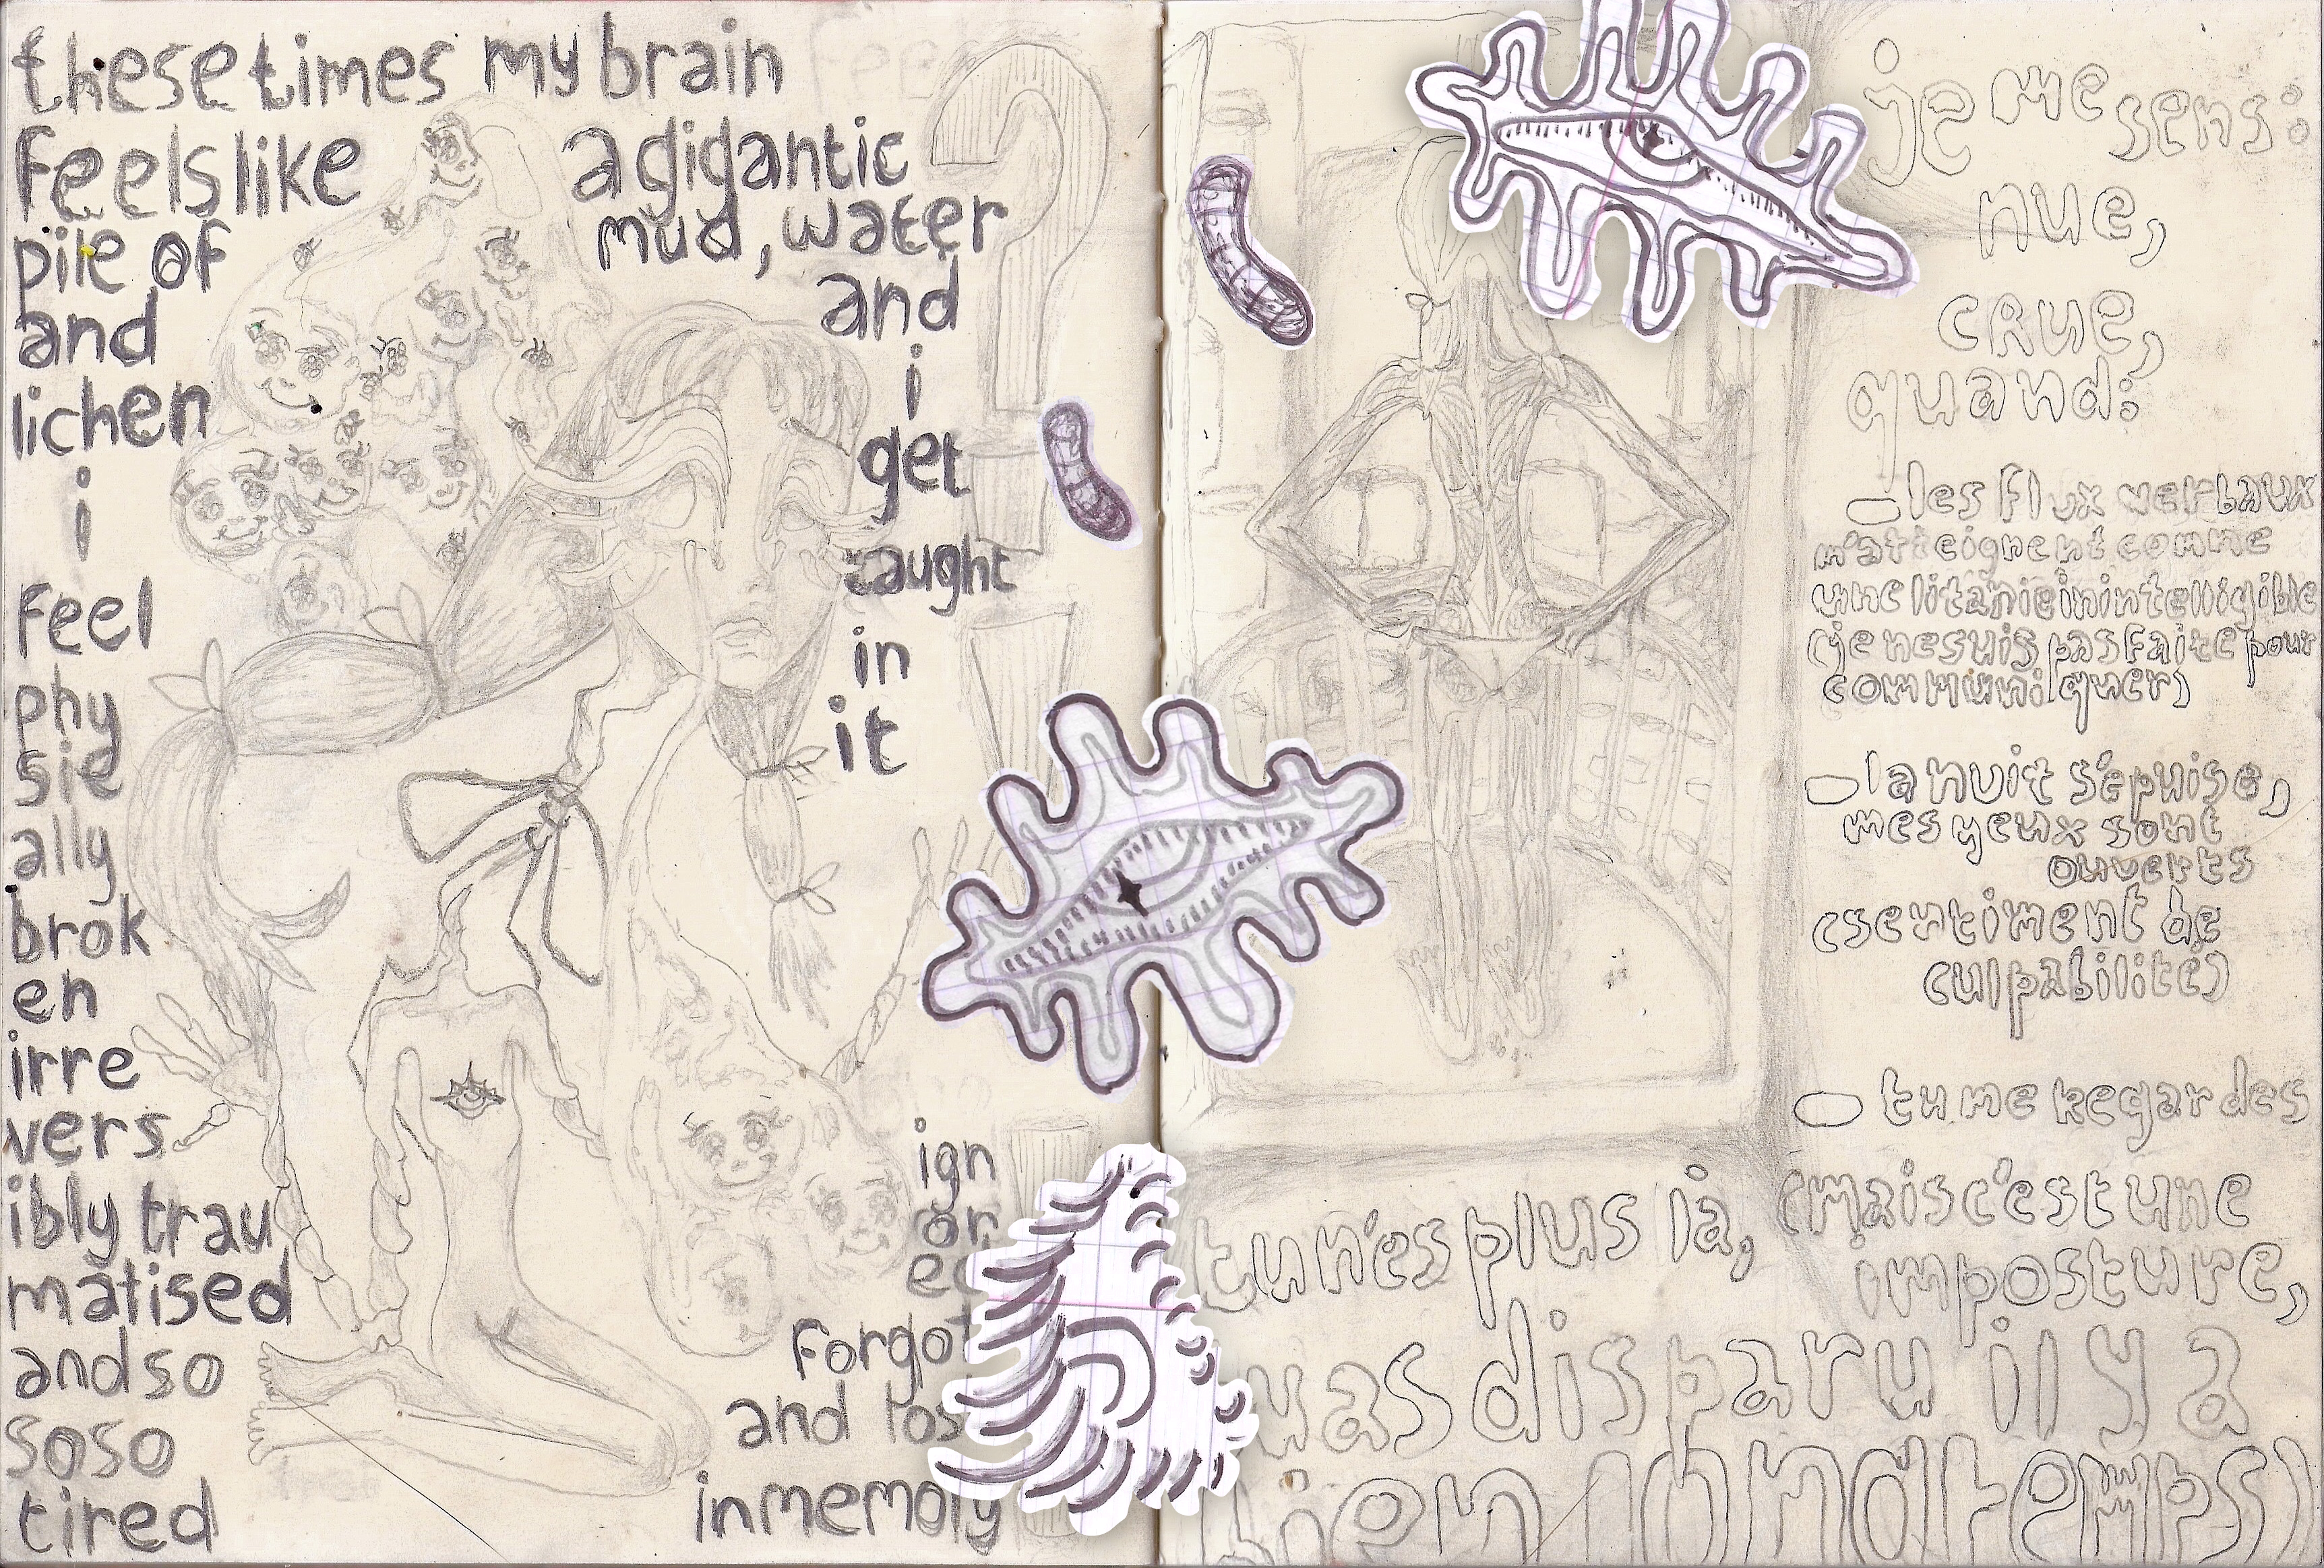 these times my brain
feels like a gigantic
pile of mud, water
and and
lichen i
i get
feel caught
phy in
sic it
ally
brok
en
irre
vers
ibly trau
matised
and so
so so
tired
ign
or
ed
forgot
and los
in memory
je me
sens:
nue,
crue,
quand:
– les flux verbaux
m'atteignent comme
une litanie inintelligible
(je ne suis pas faite pour
communiquer)
– la nuit s'épuise,
mes yeux sont
ouverts
(sentiment de
culpabilité)
– tu me regardes
(mais c'est une
imposture,
tu n'es plus là,
uas disparu il y a
bien longtemps)